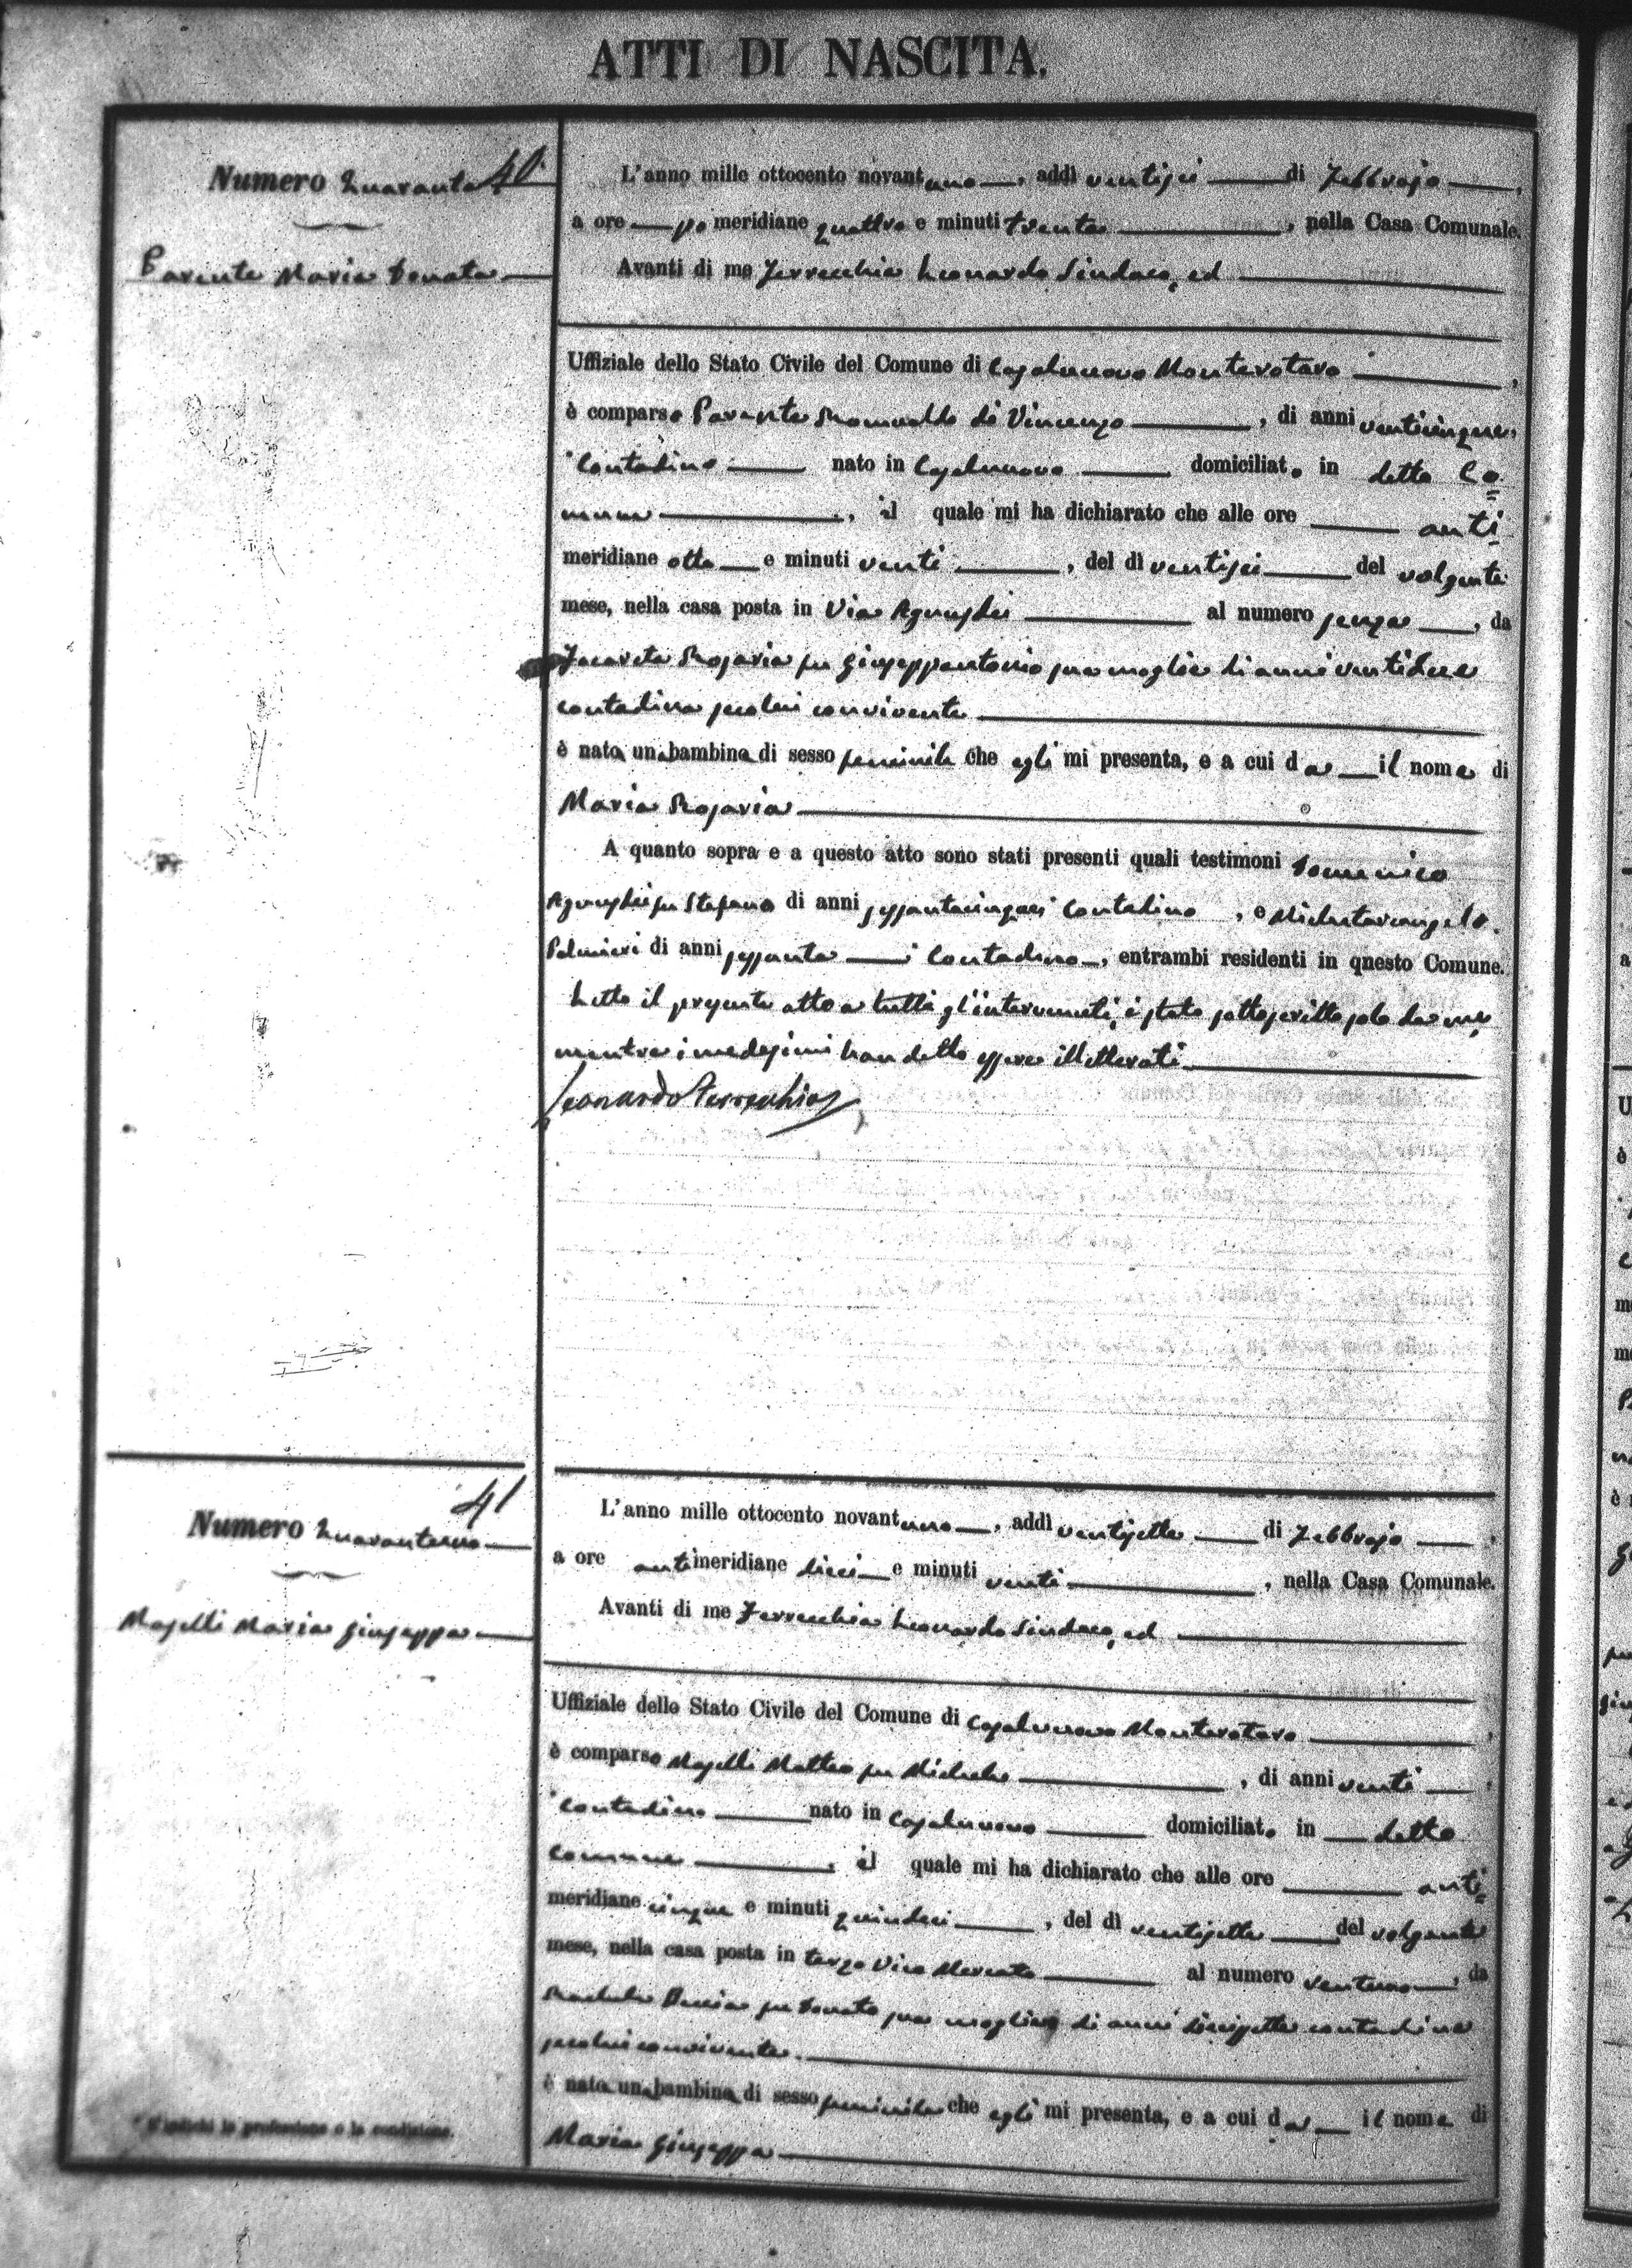 ATTI DI NASCITA.
Numero Quaranta 40
Parente Maria Donata
L'anno mille ottocento novantuno, addì ventisei di Febbrajo,
a ore po meridiane quattro e minuti trenta, nella Casa Comunale.
Avanti di me Ferrecchia Leonardo Sindaco, ed
Uffiziale dello Stato Civile del Comune di Casalnuovo Monterotaro,
è comparso Parente Romualdo di Vincenzo, di anni venticinque,
contadino nato in Casalnuovo domiciliato in detto Co=
mune, il quale mi ha dichiarato che alle ore anti
meridiane otto e minuti venti, del dì ventisei del volgente
mese, nella casa posta in Via al numero senza, da
Rosaria fu Giuseppantonio sua moglie di anni ventidue
contadina secolui convivente
è nata una bambina di sesso feminile che egli mi presenta, e a cui da il nome di
Maria Rosaria
A quanto sopra e a questo atto sono stati presenti quali testimoni Domenico
fu Stefano di anni sessantacinque contadino, e Michelarcangelo
Palmieri di anni sessanta contadino, entrambi residenti in questo Comune.
Letto il presente atto a tutti gl'intervenuti, è stato sottoscritto solo da me,
mentre i medesimi han detto essere illetterati
Leonardo Ferrecchia
Numero Quarantuno 41
Maselli Maria Giuseppa
L'anno mille ottocento novantuno, addì ventisette di Febbrajo,
a ore antimeridiane dieci e minuti venti, nella Casa Comunale.
Avanti di me Ferrecchia Leonardo Sindaco, ed
Uffiziale dello Stato Civile del Comune di Casalnuovo Monterotaro,
è comparso Maselli Matteo fu Michele, di anni venti,
contadino nato in Casalnuovo domiciliato in detto
comune, il quale mi ha dichiarato che alle ore anti=
meridiane cinque e minuti quindici, del dì ventisette del volgente
mese, nella casa posta in terzo Vico Mercato al numero ventuno, da
fu Donato sua moglie di anni diecisette contadina
secolui convivente.
è nata una bambina di sesso feminile che egli mi presenta, e a cui da il nome di
Maria Giuseppa
* S'indichi la professione o la condizione.